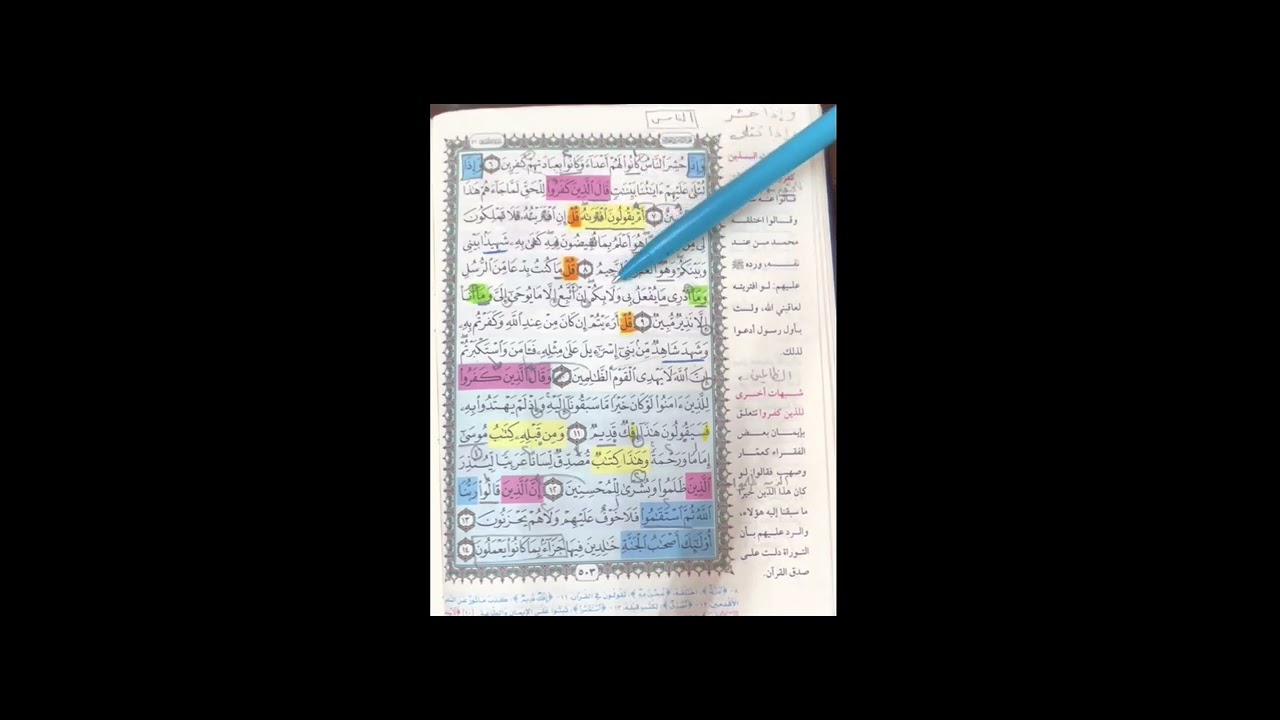 الناس
وإذا حشر
وإذا تتلى
وَإِذَا حُشِرَ ٱلنَّاسُ كَانُوا۟ لَهُمْ أَعْدَآءً وَكَانُوا۟ بِعِبَادَتِهِمْ كَٰفِرِينَ ٦ وَإِذَا
تُتْلَىٰ عَلَيْهِمْ ءَايَٰتُنَا بَيِّنَٰتٍ قَالَ ٱلَّذِينَ كَفَرُوا۟ لِلْحَقِّ لَمَّا جَآءَهُمْ هَٰذَا
مُّبِينٌ ٧ أَمْ يَقُولُونَ ٱفْتَرَىٰهُ قُلْ إِنِ ٱفْتَرَيْتُهُۥ فَلَا تَمْلِكُونَ
لِى مِنَ هُوَ أَعْلَمُ بِمَا تُفِيضُونَ فِيهِ كَفَىٰ بِهِۦ شَهِيدًۢا بَيْنِى
وَبَيْنَكُمْ وَهُوَ ٱلْغَفُورُ ٱلرَّحِيمُ ٨ قُلْ مَا كُنتُ بِدْعًا مِّنَ ٱلرُّسُلِ
وَمَآ أَدْرِى مَا يُفْعَلُ بِى وَلَا بِكُمْ إِنْ أَتَّبِعُ إِلَّا مَا يُوحَىٰٓ إِلَىَّ وَمَآ أَنَا۠
إِلَّا نَذِيرٌ مُّبِينٌ ٩ قُلْ أَرَءَيْتُمْ إِن كَانَ مِنْ عِندِ ٱللَّهِ وَكَفَرْتُم بِهِۦ
وَشَهِدَ شَاهِدٌ مِّنۢ بَنِىٓ إِسْرَٰٓءِيلَ عَلَىٰ مِثْلِهِۦ فَـَٔامَنَ وَٱسْتَكْبَرْتُمْ
إِنَّ ٱللَّهَ لَا يَهْدِى ٱلْقَوْمَ ٱلظَّٰلِمِينَ ١٠ وَقَالَ ٱلَّذِينَ كَفَرُوا۟
لِلَّذِينَ ءَامَنُوا۟ لَوْ كَانَ خَيْرًا مَّا سَبَقُونَآ إِلَيْهِ وَإِذْ لَمْ يَهْتَدُوا۟ بِهِۦ
فَسَيَقُولُونَ هَٰذَآ إِفْكٌ قَدِيمٌ ١١ وَمِن قَبْلِهِۦ كِتَٰبُ مُوسَىٰٓ
إِمَامًا وَرَحْمَةً وَهَٰذَا كِتَٰبٌ مُّصَدِّقٌ لِّسَانًا عَرَبِيًّا لِّيُنذِرَ
ٱلَّذِينَ ظَلَمُوا۟ وَبُشْرَىٰ لِلْمُحْسِنِينَ ١٢ إِنَّ ٱلَّذِينَ قَالُوا۟ رَبُّنَا
ٱللَّهُ ثُمَّ ٱسْتَقَٰمُوا۟ فَلَا خَوْفٌ عَلَيْهِمْ وَلَا هُمْ يَحْزَنُونَ ١٣
أُو۟لَٰٓئِكَ أَصْحَٰبُ ٱلْجَنَّةِ خَٰلِدِينَ فِيهَا جَزَآءًۢ بِمَا كَانُوا۟ يَعْمَلُونَ ١٤
٥٠٣
وقالوا اختلقه
محمد من عند
نفسه، ورده ﷺ
عليهم: لو افتريته
لعاقبني الله، ولست
بأول رسول أدعوا
لذلك.
الظالمين
شبهات أخرى
للذين كفروا تتعلق
بإيمان بعض
الفقراء كعمار
وصهيب فقالوا: لو
كان هذا الدين خيرا
ما سبقنا إليه هؤلاء،
والرد عليهم بأن
التوراة دلت على
صدق القرآن.